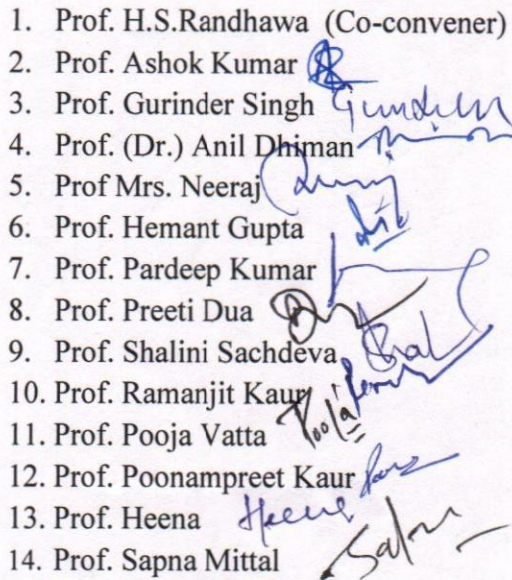 1. Prof. H.S.Randhawa (Co-convener)
2. Prof. Ashok Kumar
3. Prof. Gurinder Singh
4. Prof. (Dr.) Anil Dhiman
5. Prof Mrs. Neeraj
6. Prof. Hemant Gupta
7. Prof. Pardeep Kumar
8. Prof. Preeti Dua
9. Prof. Shalini Sachdeva
10. Prof. Ramanjit Kaur
11. Prof. Pooja Vatta Pooja
12. Prof. Poonampreet Kaur
13. Prof. Heena Heena
14. Prof. Sapna Mittal